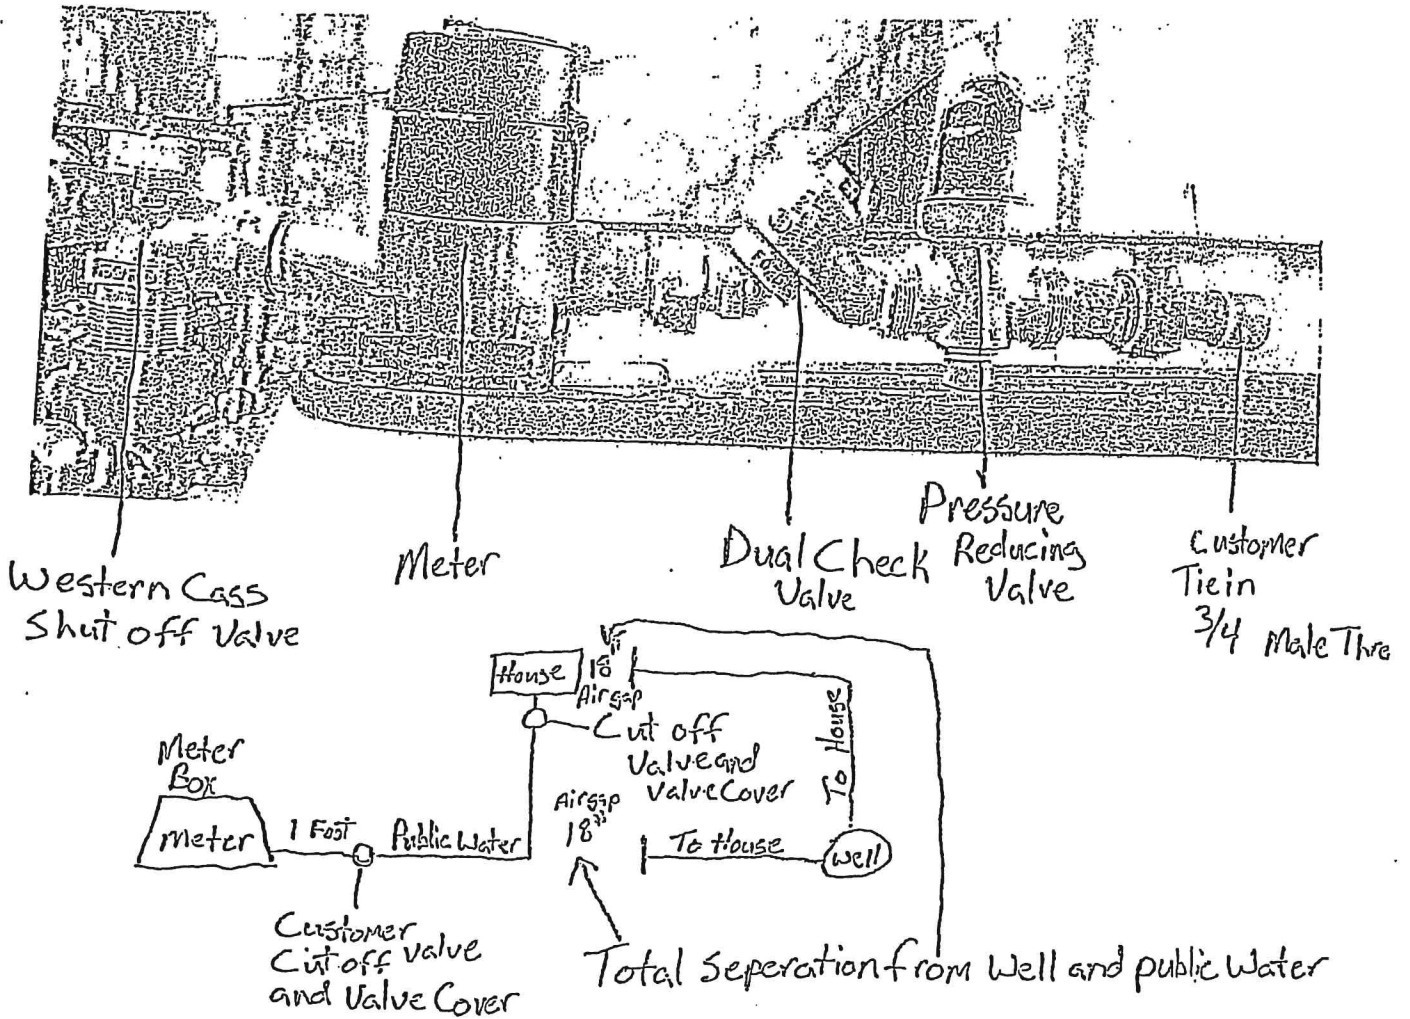 Western Cass
Shut off Valve
Meter
Dual Check
Valve
Pressure
Reducing
Valve
Customer
Tiein
3/4 Male Thre
House
18"
Airgap
Cut off
Valve and
Valve Cover
To House
Meter
Box
Meter
1 Foot
Public Water
Airgap
18"
To House
Well
Customer
Cutoff Valve
and Valve Cover
Total Seperation from Well and public Water